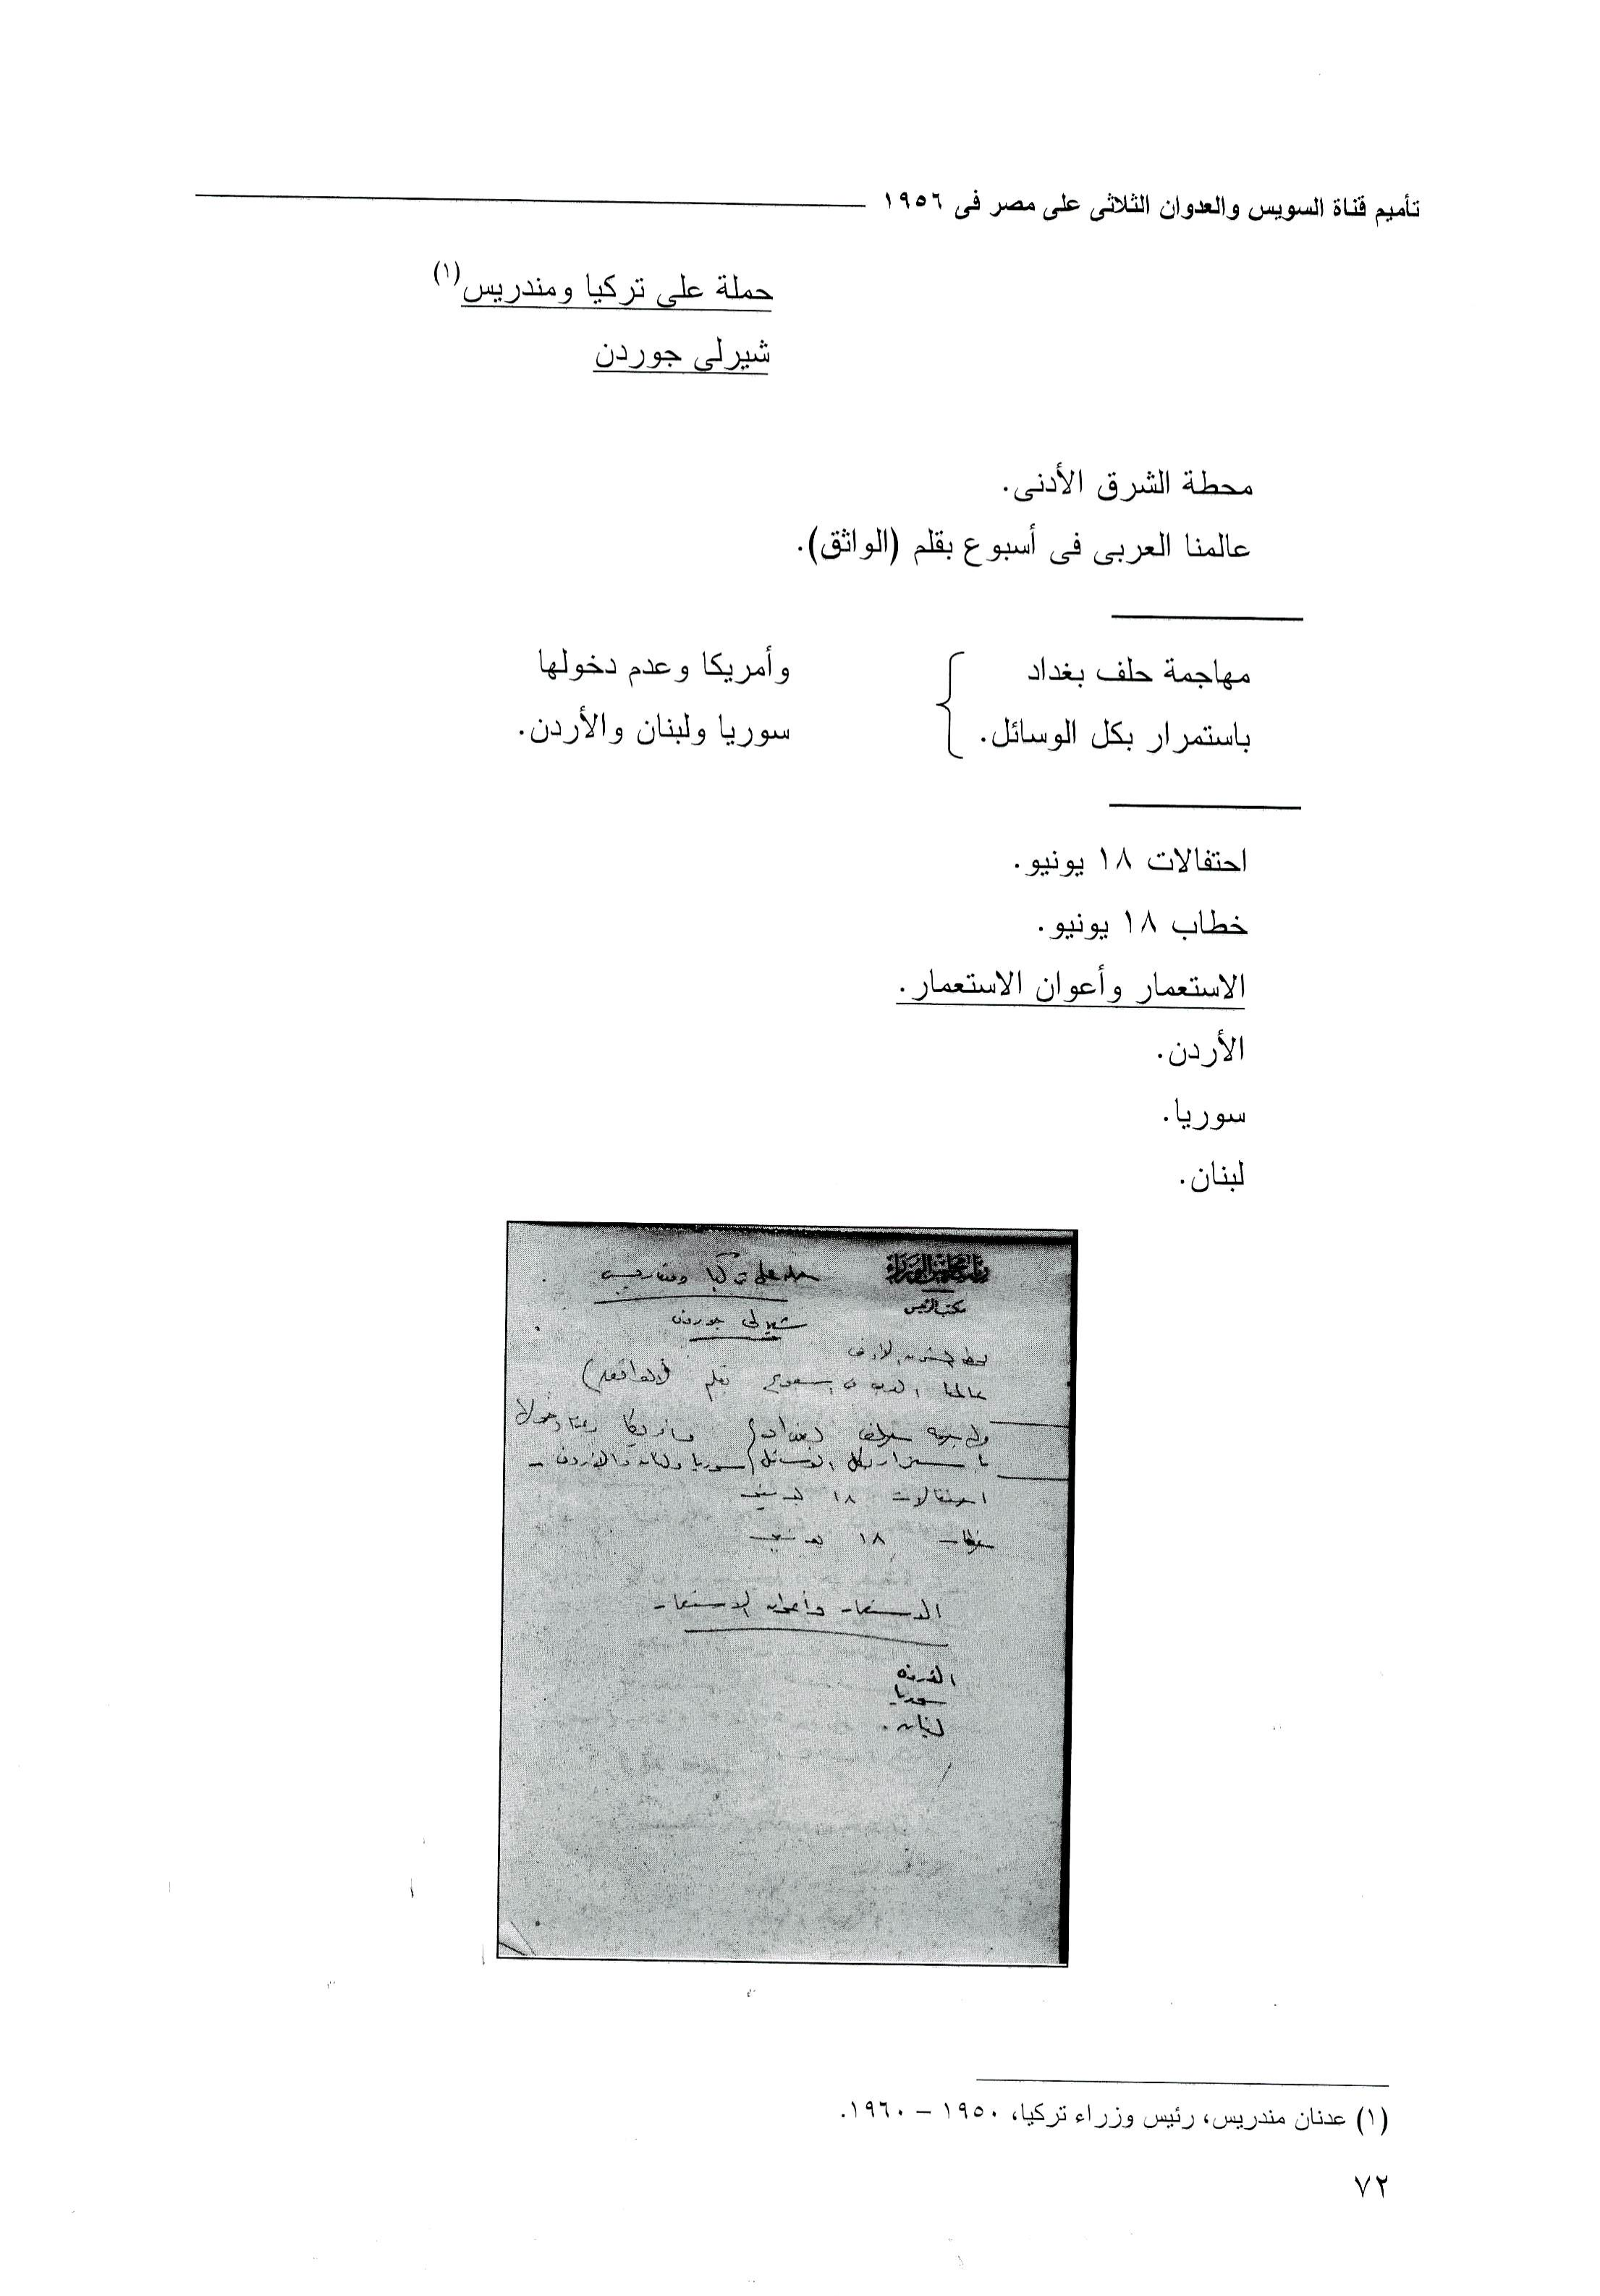 تأميم قناة السويس والعدوان الثلاثى على مصر فى ١٩٥٦
حملة على تركيا ومندريس(١)
شيرلى جوردن
محطة الشرق الأدنى.
عالمنا العربى فى أسبوع بقلم (الواثق).
مهاجمة حلف بغداد } وأمريكا وعدم دخولها
باستمرار بكل الوسائل. } سوريا ولبنان والأردن.
احتفالات ١٨ يونيو.
خطاب ١٨ يونيو.
الاستعمار وأعوان الاستعمار.
الأردن.
سوريا.
لبنان.
مكتب الرئيس
حملة على تركيا ومندريس
شيرلى جوردن
محطة الشرق الادنى
عالمنا العربى فى اسبوع بقلم (الواثق)
مهاجمة حلف بغداد } وامريكا وعدم دخولها
باستمرار بكل الوسائل } سوريا ولبنان والاردن -
احتفالات ١٨ يونيو
خطاب ١٨ يونيو
الاستعمار وأعوان الاستعمار
الاردن
سوريا
لبنان .
(١) عدنان مندريس، رئيس وزراء تركيا، ١٩٥٠ – ١٩٦٠.
٧٢